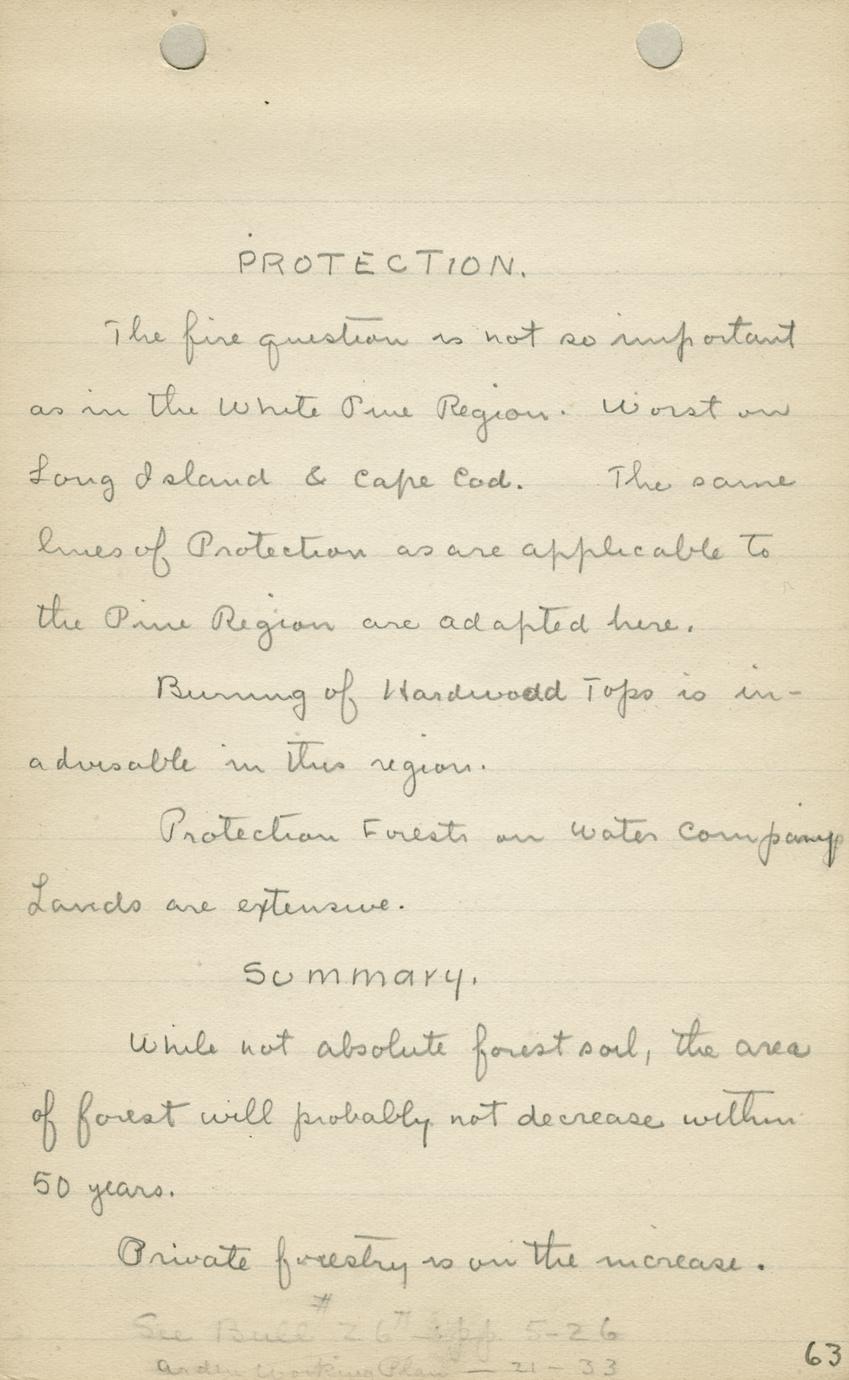 PROTECTION.
The fire question is not so important
as in the White Pine Region. Worst on
Long Island & Cape Cod. The same
lines of Protection as are applicable to
the Pine Region are adapted here.
Burning of Hardwood Tops is in-
advisable in this region.
Protection Forests on Water Company
Lands are extensive.
Summary.
While not absolute forest soil, the area
of forest will probably not decrease within
50 years.
Private forestry is on the increase.
See Bull # 26 pp 5-26
Arden Working Plan — 21-33
63